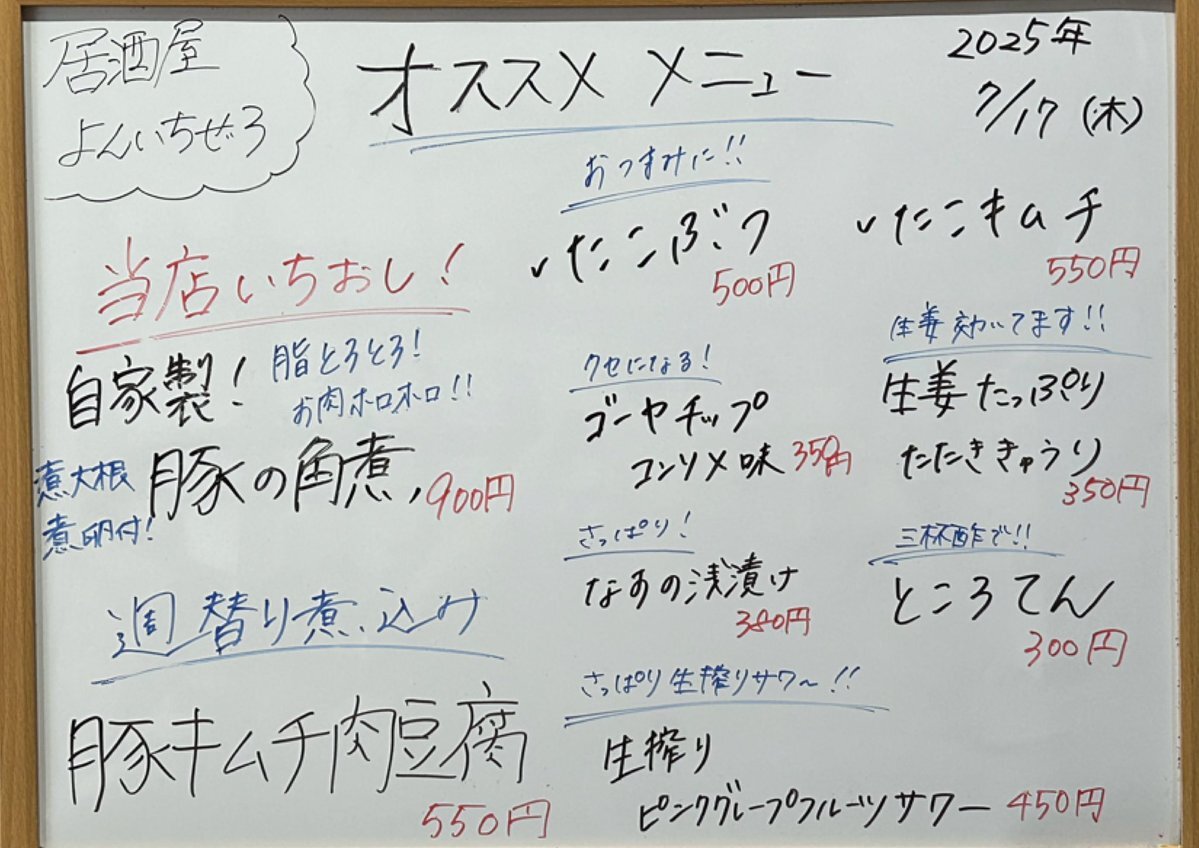 居酒屋
よんいちぜろ
オススメ メニュー
2025年
7/17 (木)
当店いちおし!
自家製!
脂とろとろ!
お肉ホロホロ!!
豚の角煮
900円
煮大根
煮卵付!
週替り煮込み
豚キムチ肉豆腐
550円
おつまみに!!
✓たこぶつ
500円
✓たこキムチ
550円
クセになる!
ゴーヤチップ
コンソメ味 350円
生姜効いてます!!
生姜たっぷり
たたききゅうり
350円
さっぱり!
なすの浅漬け
380円
三杯酢で!!
ところてん
300円
さっぱり生搾りサワ〜!!
生搾り
ピンクグレープフルーツサワー 450円